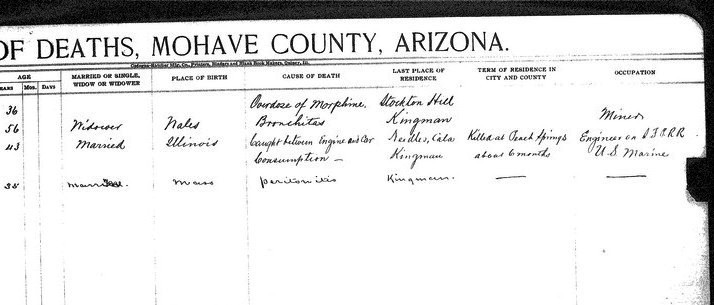 OF DEATHS, MOHAVE COUNTY, ARIZONA.
AGE
EARS Mos. Days
MARRIED OR SINGLE, WIDOW OR WIDOWER
PLACE OF BIRTH
CAUSE OF DEATH
LAST PLACE OF RESIDENCE
TERM OF RESIDENCE IN CITY AND COUNTY
OCCUPATION
36 Overdoze of Morphine. Stockton Hill
56 Widower Wales Bronchitas Kingman Miner
43 Married Illinois Caught between Engine and Car Needles, Cala Killed at Peach Springs Engineer on
Consumption — Kingman about 6 months U.S. Marine
35 Married. Mass peritonitis Kingman. — —